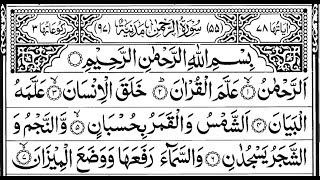 اٰیَاتُهَا ٧٨ (٥٥) سُوْرَةُ الرَّحْمٰنِ مَدَنِيَّةٌ (٩٧) رُكُوْعَاتُهَا ٣
بِسْمِ اللّٰهِ الرَّحْمٰنِ الرَّحِيْمِ
اَلرَّحْمٰنُ ۙ۝١ عَلَّمَ الْقُرْاٰنَ ؕ۝٢ خَلَقَ الْاِنْسَانَ ۙ۝٣ عَلَّمَهُ
الْبَيَانَ ۝٤ اَلشَّمْسُ وَالْقَمَرُ بِحُسْبَانٍ ۪۝٥ وَّالنَّجْمُ وَ
الشَّجَرُ يَسْجُدٰنِ ۝٦ وَالسَّمَآءَ رَفَعَهَا وَوَضَعَ الْمِيْزَانَ ۙ۝٧